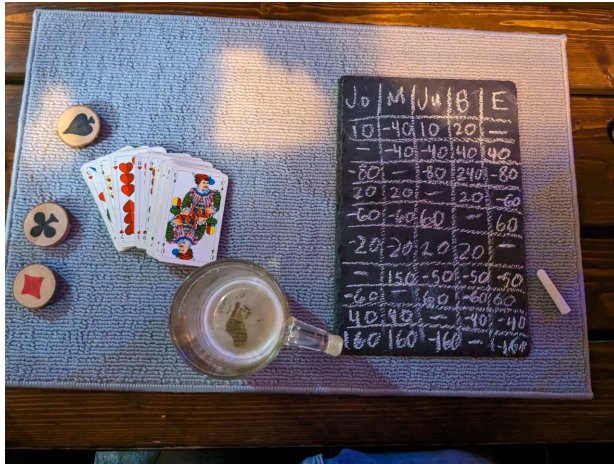 Jo M Ju B E
10 -40 10 20 —
— -40 -40 40 40
-80 — -80 240 -80
20 20 — 20 -60
-60 -60 60 — 60
-20 -20 20 20 —
— 150 -50 -50 -50
-60 — 60 -60 60
40 40 — -40 -40
160 160 -160 — -160